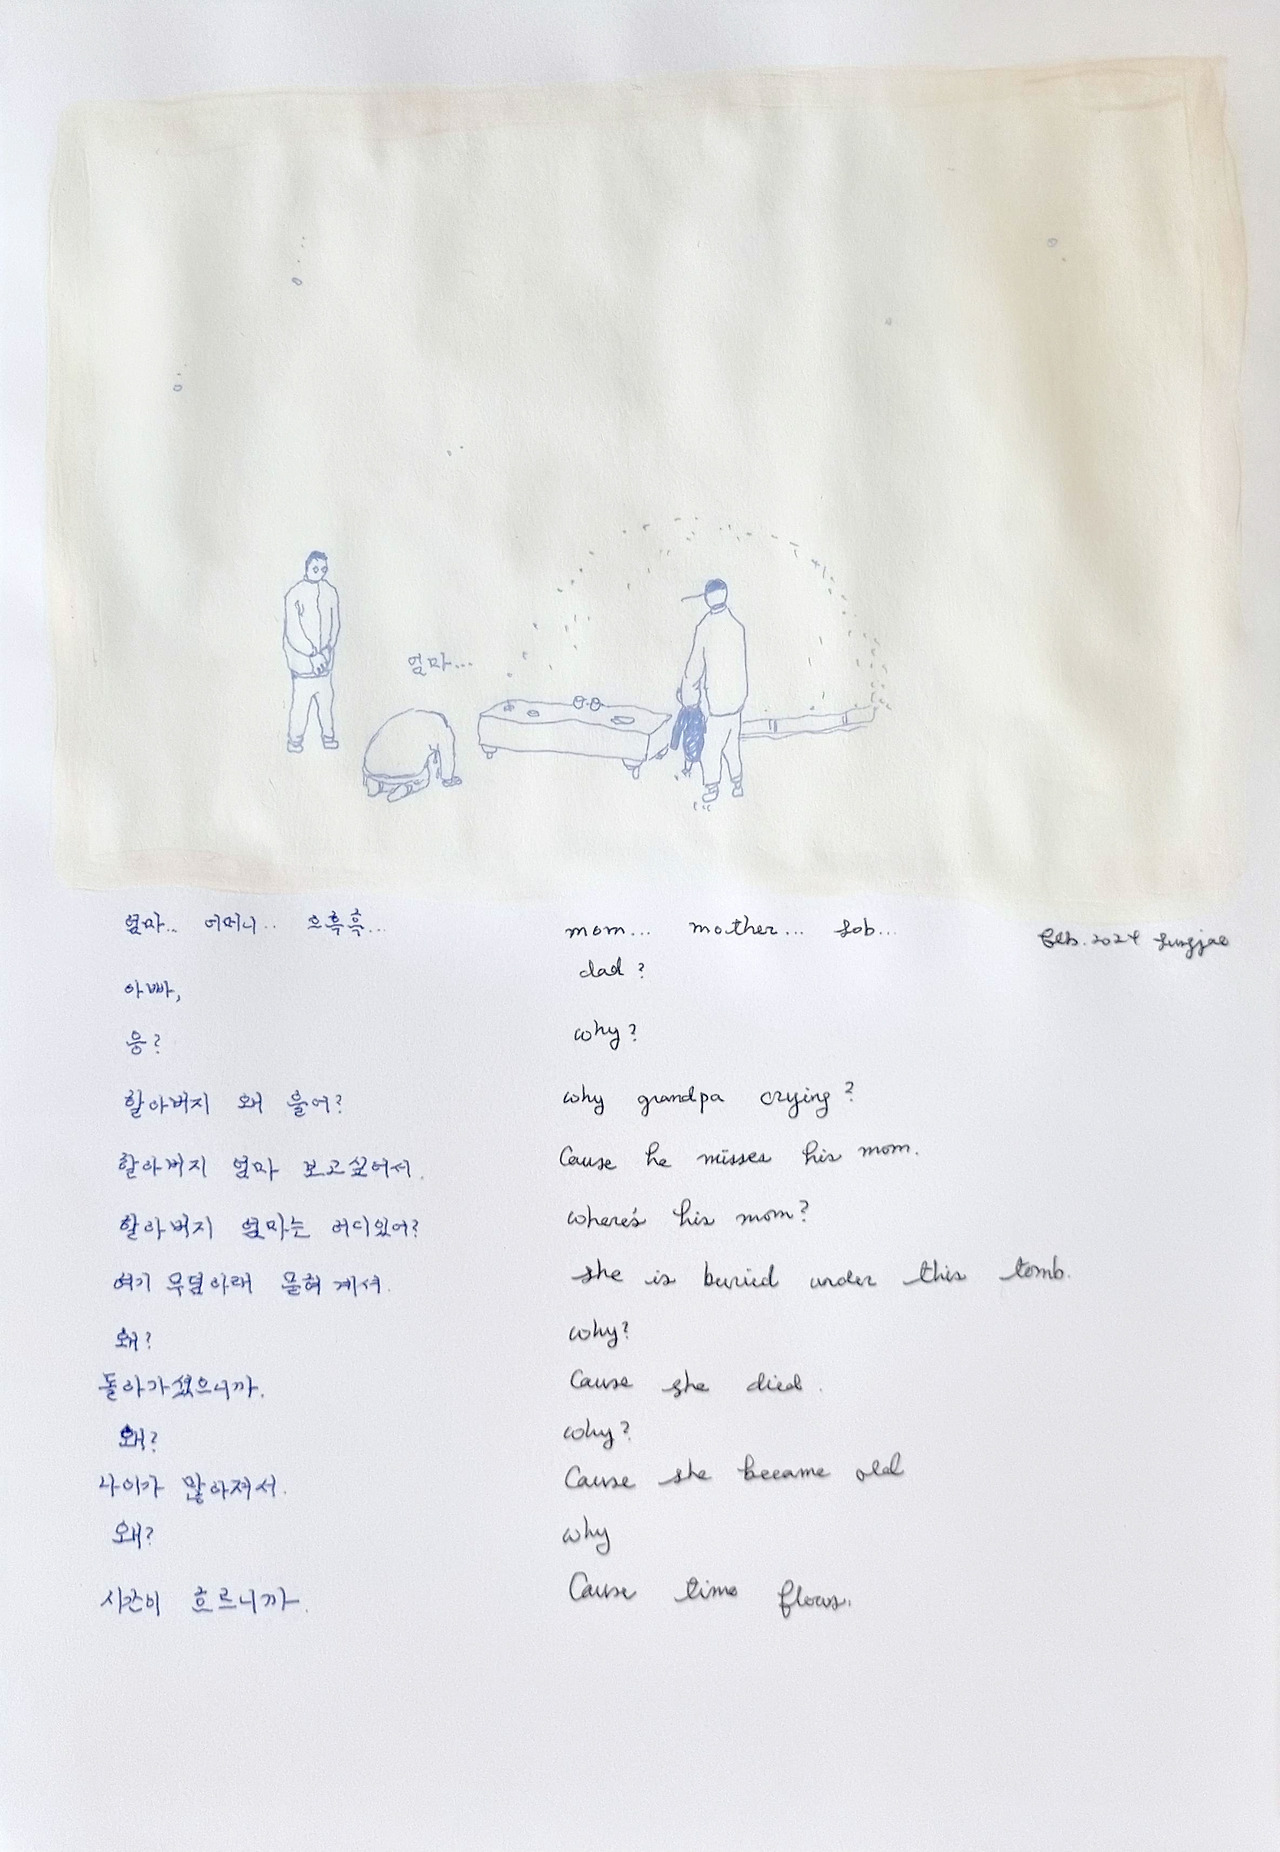 엄마...
엄마... 어머니.. 으흑흑...
아빠,
응?
할아버지 왜 울어?
할아버지 엄마 보고싶어서.
할아버지 엄마는 어디있어?
여기 무덤아래 묻혀 계셔.
왜?
돌아가셨으니까.
왜?
나이가 많아져서.
왜?
시간이 흐르니까.
mom... mother... sob...
dad?
why?
why grandpa crying?
Cause he misses his mom.
where's his mom?
she is buried under this tomb.
why?
Cause she died.
why?
Cause she became old
why
Cause time flows.
Feb. 2024 Sungjae